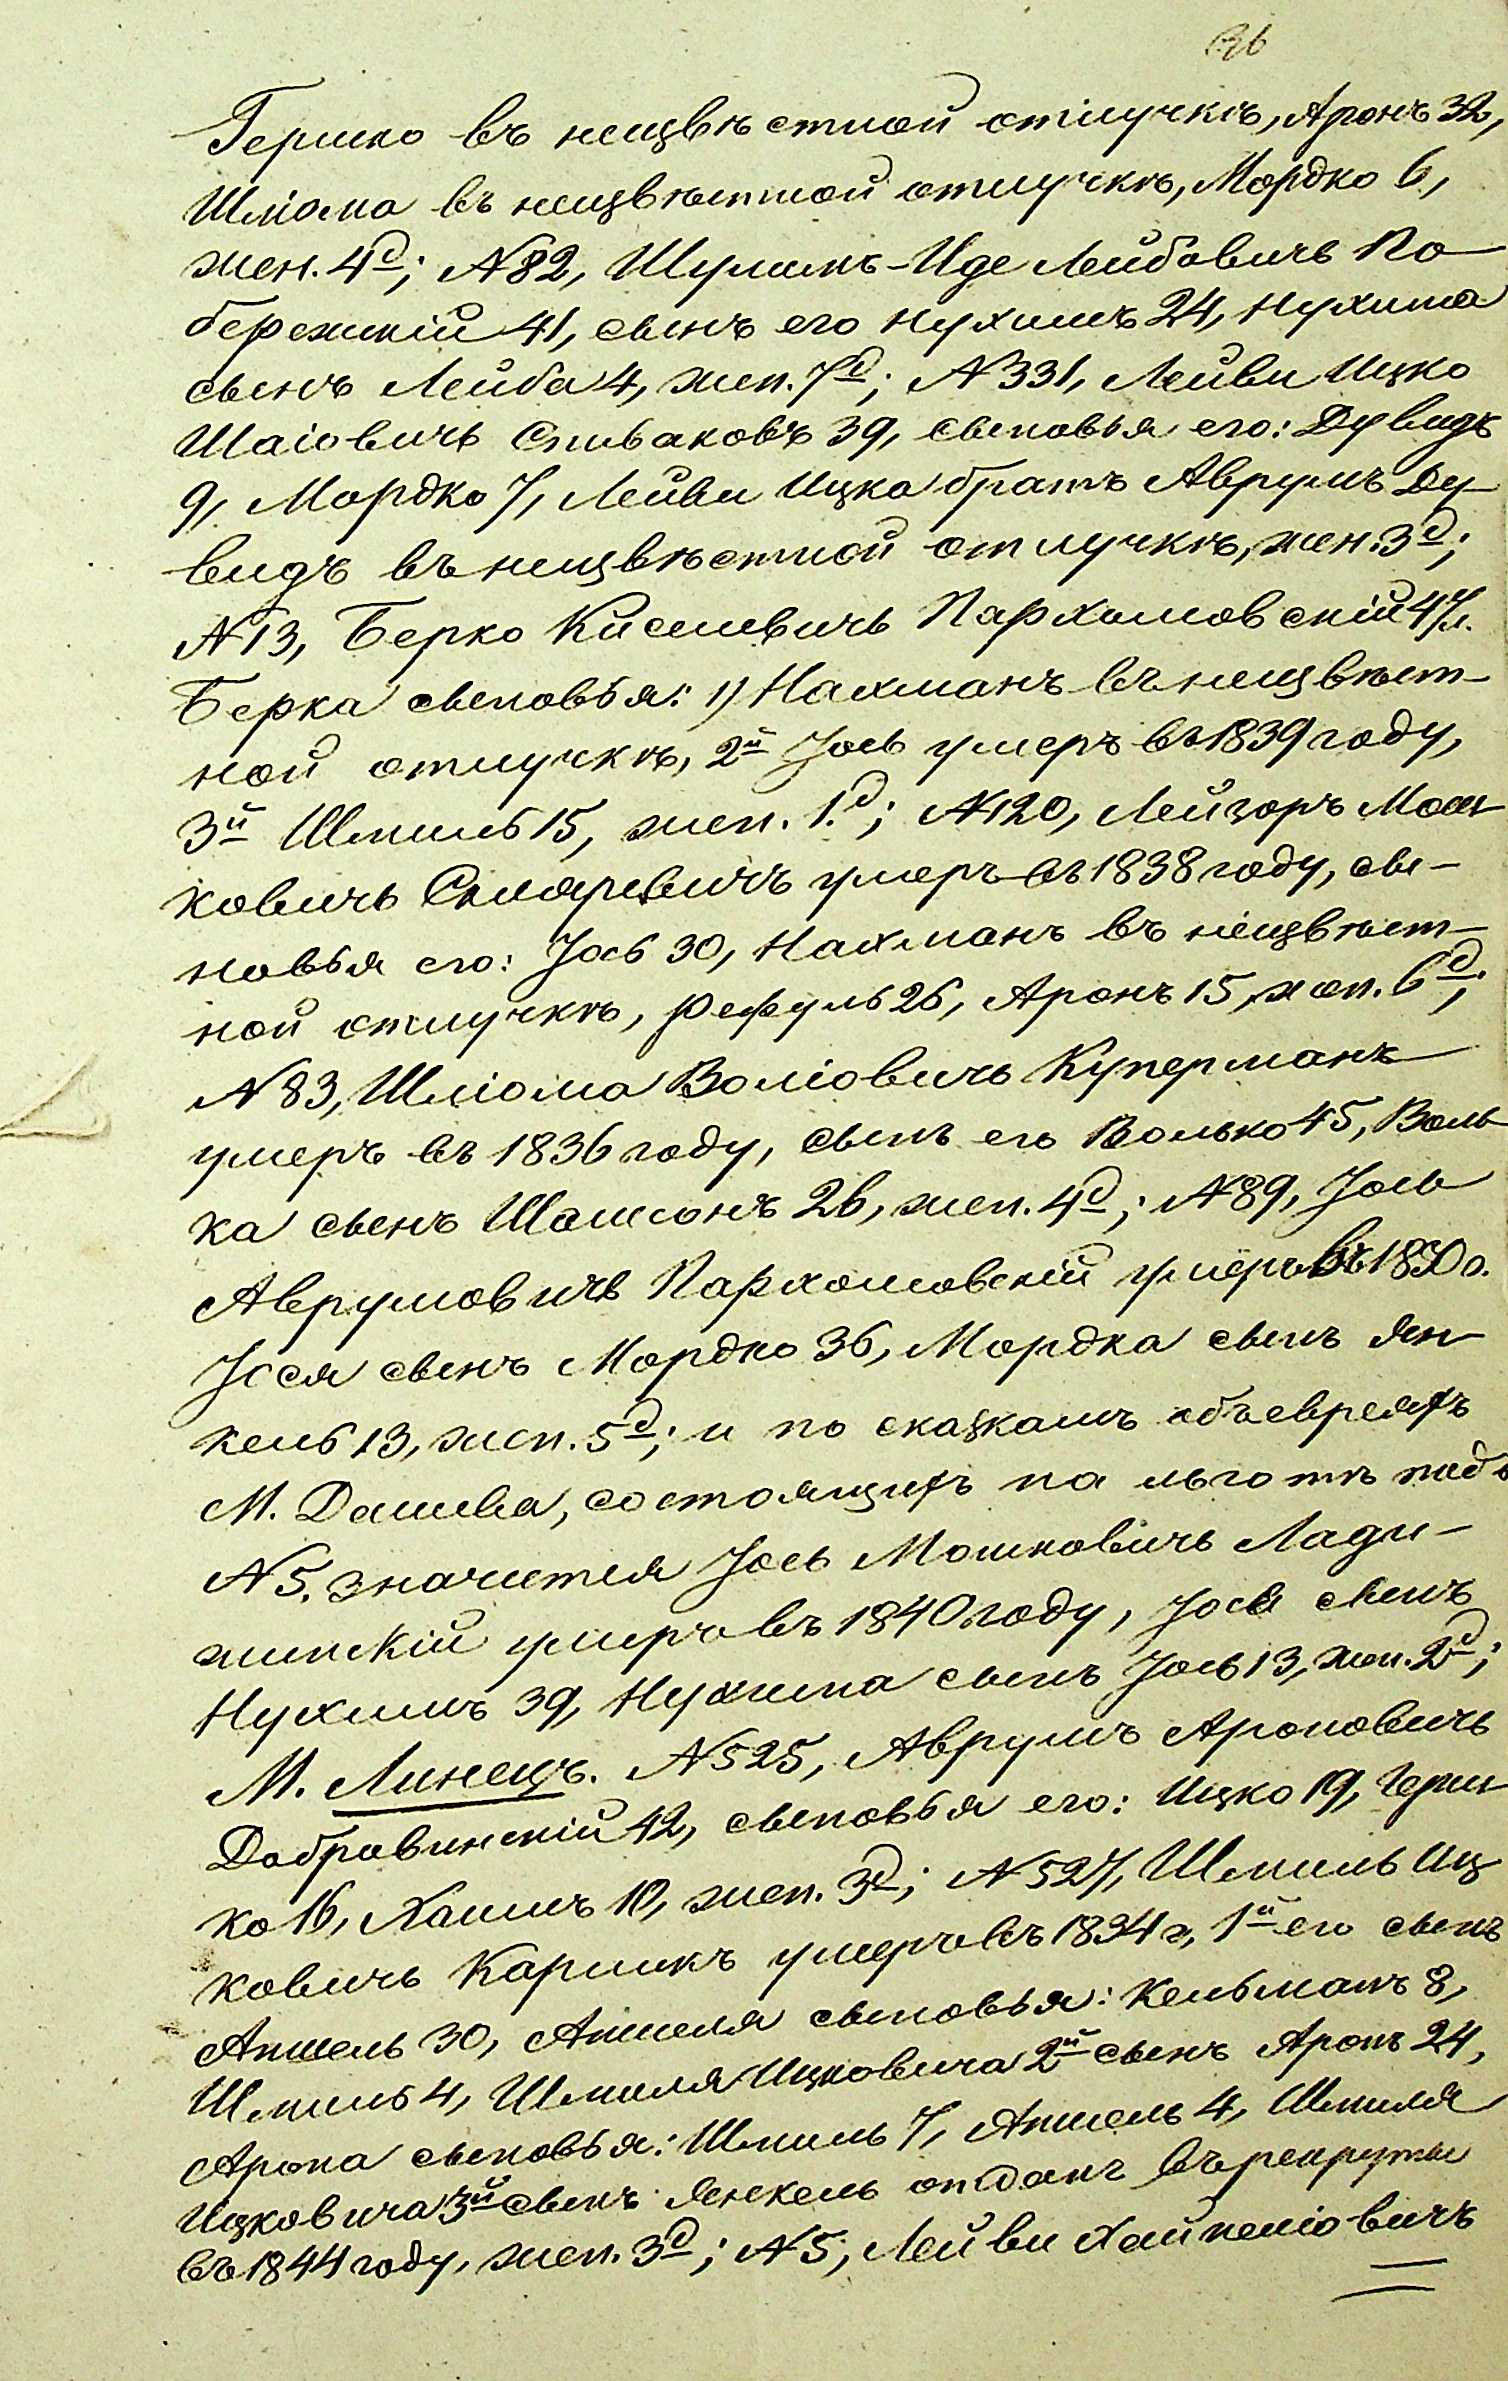 36
Гершко въ неизвѣстной отлучкѣ, Аронъ 32,
Шліома въ неизвѣстной отлучкѣ, Мордко 6,
жен. 4д; №82, Шулимъ-Иде Лейбовичъ По-
бережскій 41, сынъ его Нухимъ 24, Нухима
сынъ Лейба 4, жен. 7д; №331, Лейви Ицко
Шаіовичъ Спиваковъ 39, сыновья его: Дувидъ
9, Мордко 7, Лейви Ицка братъ Аврумъ Ду-
видъ въ неизвѣстной отлучкѣ, жен. 3д;
№13, Берко Киселевичъ Пархомовскій 47л.
Берка сыновья: 1) Нахманъ въ неизвѣст-
ной отлучкѣ, 2й Іось умеръ въ 1839 году,
3й Шмиль 15, жен. 1.д; №120, Лейзоръ Мош-
ковичъ Скляревичъ умеръ въ 1838 году, сы-
новья его: Іось 30, Нахманъ въ неизвѣст-
ной отлучкѣ, Рефуль 26, Аронъ 15, жен. 6д;
№83, Шліома Воліовичъ Куперманъ
умеръ въ 1836 году, сынъ его Волько 45, Воль-
ка сынъ Шамсонъ 26, жен. 4д; №89, Іось
Аврумовичъ Пархомовскій умеръ въ 1850г.
Іося сынъ Мордко 36, Мордка сынъ Ян-
кель 13, жен. 5д; и по сказкамъ объ евреяхъ
М. Дашева, состоящихъ на льготѣ подъ
№5. значится Іось Мошковичъ Лады-
жинскій умеръ въ 1840 году, Іося сынъ
Нухимъ 39, Нухима сынъ Іось 13, жен. 2д;
М. Линецъ. №525, Аврумъ Ароновичъ
Добровинскій 42, сыновья его: Ицко 19, Герш-
ко 16, Хаимъ 10, жен. 3д; №527, Шмиль Иц-
ковичъ Каршкъ умеръ въ 1834г, 1й его сынъ
Аншель 30, Аншеля сыновья: Кельманъ 8,
Шмиль 4, Шмиля Ицковича 2й сынъ Аронъ 24,
Арона сыновья: Шмиль 7, Аншель 4, Шмиля
Ицковича 3й сынъ Янкель отданъ въ рекруты
въ 1844 году, жен. 3д; №5, Лейви Хайкеліовичъ